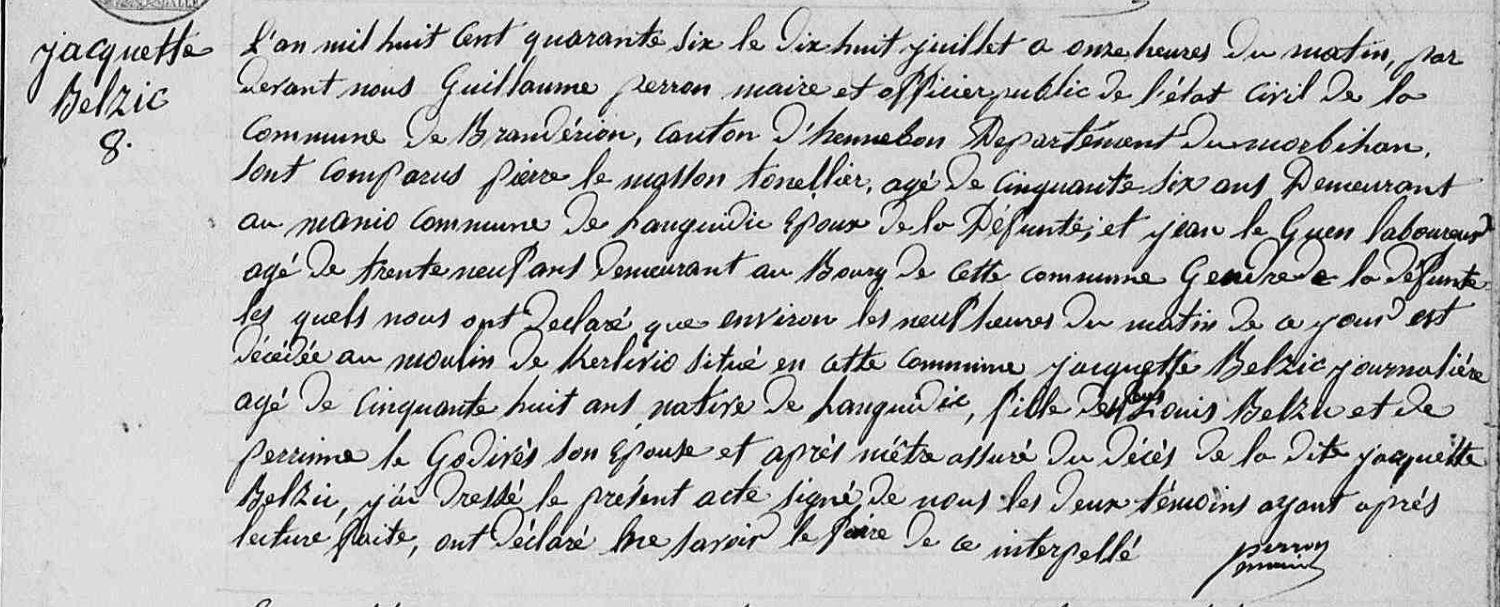 jacquette
Belzic
8.
L'an mil huit cent quarante six le dix huit juillet a onze heures du matin, par
devant nous Guillaume perron maire et officier public de l'état civil de la
commune de Brandérion, canton d'hennebon Departément du morbihan,
sont comparus pierre le masson tonellier, agé de cinquante six ans Demeurant
au manio commune de Languidic Epoux de la Défunte; et jean le Guen laboureur
agé de trente neuf ans demeurant au Bourg de cette commune Gendre de la défunte
les quels nous ont Declaré que environ les neuf heures du matin de ce jour est
décédée au moulin de Kerlivio situé en cette commune jacquette Belzic journalière
agé de cinquante huit ans native de Languidic, fille de Louis Belzic et de
perrinne le Godivès son Epouse et après m'être assuré du décès de la dite jacquette
Belzic, j'ai dressé le présent acte signé de nous les deux témoins ayant après
lecture faite, ont déclaré ne savoir le faire de ce interpellé
perron
maire